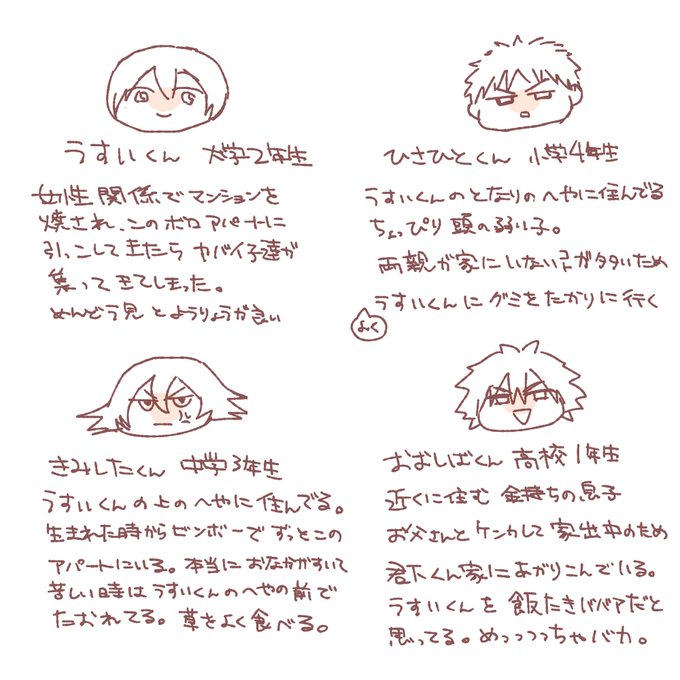 うすいくん 大学2年生
女性関係でマンションを
焼され、このボロアパートに
引っこしてきたら ヤバイ子達が
集ってきてしまった。
めんどう見とようりょうが良い
ひさひとくん 小学4年生
うすいくんのとなりのへやに住んでる
ちょっぴり頭の弱い子。
両親が家にいない日がタタいため
うすいくんにグミをたかりに行く
よく
きみしたくん 中学3年生
うすいくんの上のへやに住んでる。
生まれた時からビンボーでずっとこの
アパートにいる。本当におなかがすいて
苦しい時はうすいくんのへやの前で
たおれてる。草をよく食べる。
おおしばくん 高校1年生
近くに住む 金持ちの息子
お父さんとケンカして家出中のため
君下くん家にあがりこんでいる。
うすいくんを飯たきババアだと
思ってる。めっっっっちゃバカ。